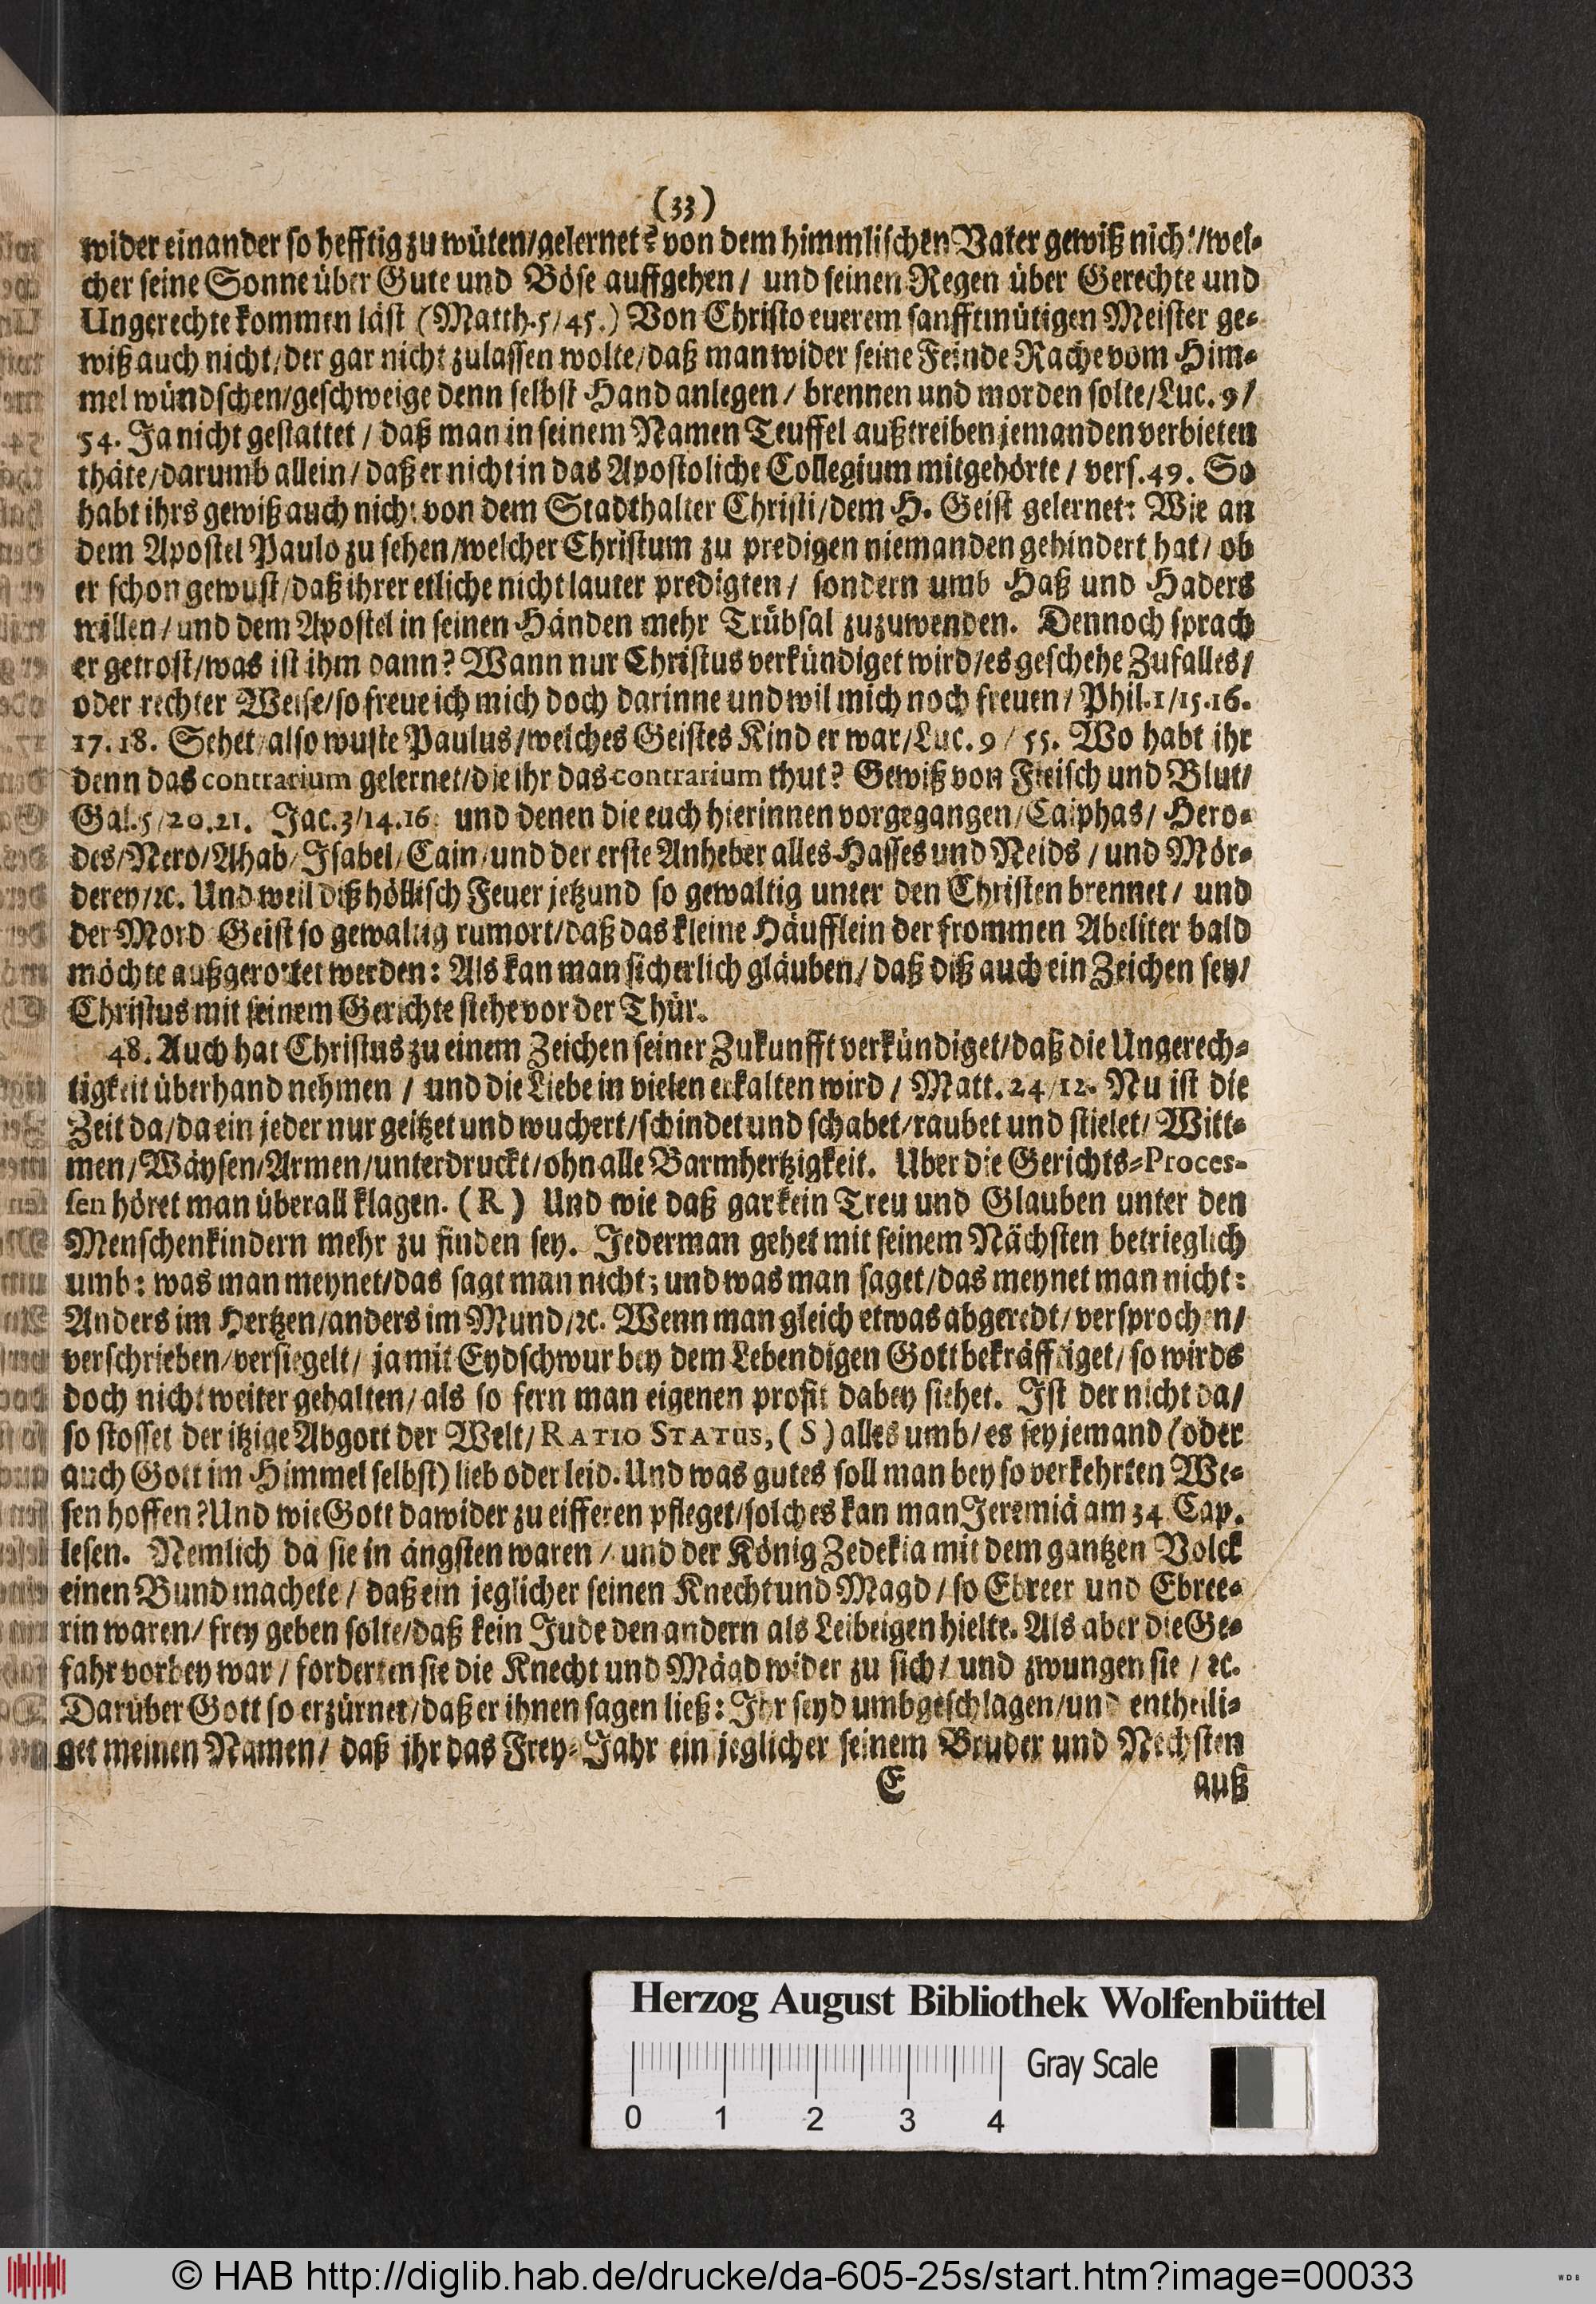 (33)
wider einander so hefftig zu wüten/gelernet? von dem himmlischen Vater gewiß nicht/wel-
cher seine Sonne über Gute und Böse auffgehen/ und seinen Regen über Gerechte und
Ungerechte kommen läst (Matth.5/45.) Von Christo euerem sanfftmütigen Meister ge-
wiß auch nicht/der gar nicht zulassen wolte/daß man wider seine Feinde Rache vom Him-
mel wündschen/geschweige denn selbst Hand anlegen/ brennen und morden solte/Luc.9/
54. Ja nicht gestattet/ daß man in seinem Namen Teuffel außtreiben jemanden verbieten
thäte/darumb allein/ daß er nicht in das Apostoliche Collegium mitgehörte/ vers.49. So
habt ihrs gewiß auch nicht von dem Stadthalter Christi/dem H. Geist gelernet: Wie an
dem Apostel Paulo zu sehen/welcher Christum zu predigen niemanden gehindert hat/ ob
er schon gewust/daß ihrer etliche nicht lauter predigten/ sondern umb Haß und Haders
willen/und dem Apostel in seinen Händen mehr Trübsal zuzuwenden. Dennoch sprach
er getrost/was ist ihm dann? Wann nur Christus verkündiget wird/es geschehe Zufalles/
oder rechter Weise/so freue ich mich doch darinne und wil mich noch freuen/ Phil.1/15.16.
17.18. Sehet/also wuste Paulus/welches Geistes Kind er war/Luc.9/55. Wo habt ihr
denn das contrarium gelernet/die ihr das contrarium thut? Gewiß von Fleisch und Blut/
Gal.5/20.21. Jac.3/14.16. und denen die euch hierinnen vorgegangen/Caiphas/ Hero-
des/Nero/Ahab/Isabel/Cain/und der erste Anheber alles Hasses und Neids/ und Mör-
derey/ꝛc. Und weil diß höllisch Feuer jetzund so gewaltig unter den Christen brennet/ und
der Mord Geist so gewaltig rumort/daß das kleine Häufflein der frommen Abeliter bald
möchte außgerottet werden: Als kan man sicherlich gläuben/daß diß auch ein Zeichen sey/
Christus mit seinem Gerichte stehe vor der Thür.
48. Auch hat Christus zu einem Zeichen seiner Zukunfft verkündiget/daß die Ungerech-
tigkeit überhand nehmen/ und die Liebe in vielen erkalten wird/ Matt.24/12. Nu ist die
Zeit da/da ein jeder nur geitzet und wuchert/schindet und schabet/raubet und stielet/ Witt-
men/Wäysen/Armen/unterdruckt/ohn alle Barmhertzigkeit. Uber die Gerichts-Proces-
sen höret man überall klagen. (R) Und wie daß gar kein Treu und Glauben unter den
Menschenkindern mehr zu finden sey. Jederman gehet mit seinem Nächsten betrieglich
umb: was man meynet/das sagt man nicht; und was man saget/das meynet man nicht:
Anders im Hertzen/anders im Mund/ꝛc. Wenn man gleich etwas abgeredt/versprochen/
verschrieben/versiegelt/ ja mit Eydschwur bey dem Lebendigen Gott bekräfftiget/so wirds
doch nicht weiter gehalten/als so fern man eigenen profit dabey siehet. Ist der nicht da/
so stosset der itzige Abgott der Welt/RATIO STATUS,(S) alles umb/es sey jemand (oder
auch Gott im Himmel selbst) lieb oder leid. Und was gutes soll man bey so verkehrten We-
sen hoffen? Und wie Gott dawider zu eifferen pfleget/solches kan man Jeremiä am 34 Cap.
lesen. Nemlich da sie in ängsten waren/ und der König Zedekia mit dem gantzen Volck
einen Bund machete/ daß ein jeglicher seinen Knecht und Magd/ so Ebreer und Ebree-
rin waren/frey geben solte/daß kein Jude den andern als Leibeigen hielte. Als aber die Ge-
fahr vorbey war/ forderten sie die Knecht und Mägd wider zu sich/ und zwungen sie/ ꝛc.
Darüber Gott so erzürnet/daß er ihnen sagen ließ: Ihr seyd umbgeschlagen/und entheili-
get meinen Namen/ daß ihr das Frey-Jahr ein jeglicher seinem Bruder und Nechsten
E auß
Herzog August Bibliothek Wolfenbüttel
Gray Scale
0 1 2 3 4
© HAB http://diglib.hab.de/drucke/da-605-25s/start.htm?image=00033
WDB